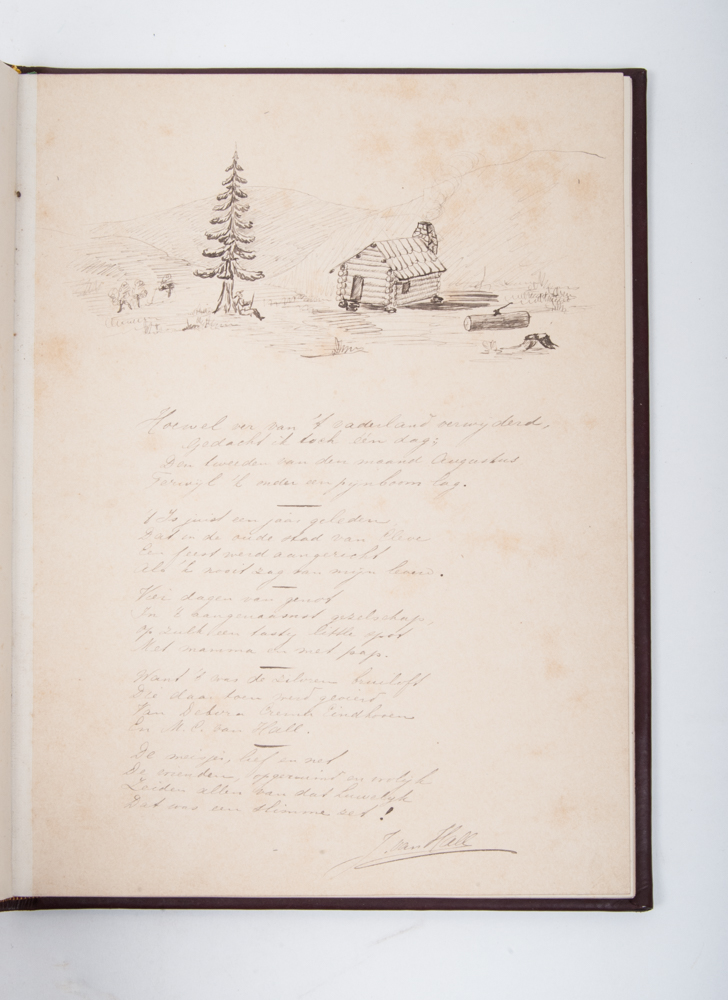 Hoewel ver van 't vaderland verwyderd,
Gedacht ik toch één dag;
Den tweeden van den maand Augustus
Terwijl 'k onder een pynboom lag.
't Is juist een jaar geleden
Dat in de oude stad van Cleve
Een feest werd aangerecht
als 'k nooit zag van mijn leven.
Vier dagen van genot
In 't aangenaamst gezelschap,
Op zulk een tasty little spot
Met mamma en met pap.
Want 't was de zilveren bruiloft
Die daar toen werd gevierd
Van Eindhoven
En M. E. van Hall.
De meisjes, lief en net
De vrienden, opgeruimd en vrolyk
Zeiden allen van dat huwelyk
Dat was een slimme zet!
J. van Hall